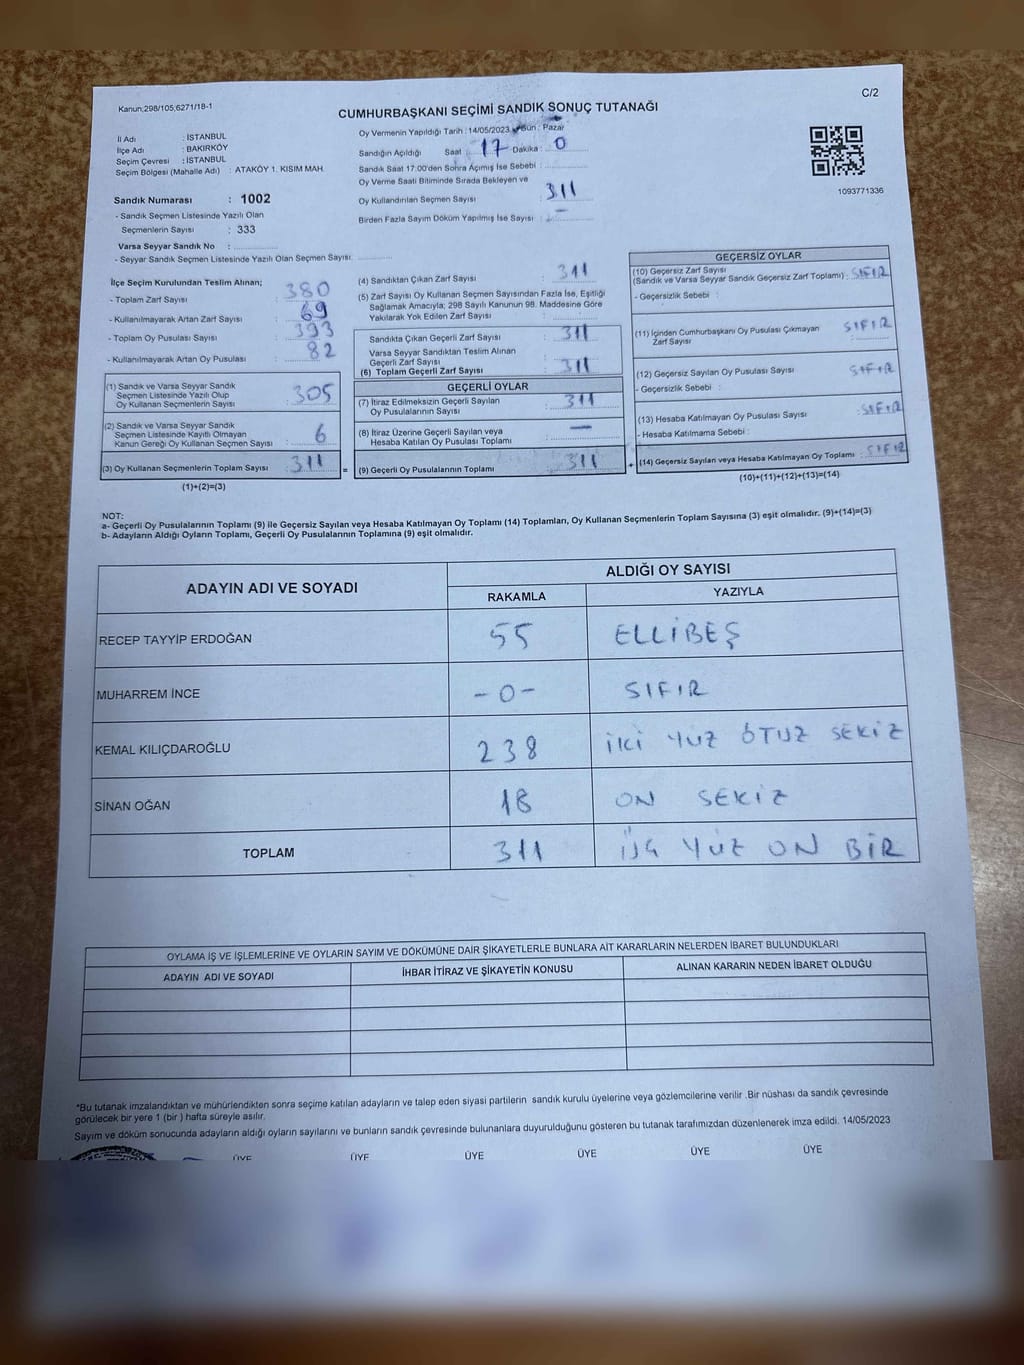 Kanun;298/105,6271/18-1
C/2
CUMHURBAŞKANI SEÇİMİ SANDIK SONUÇ TUTANAĞI
İl Adı : İSTANBUL
İlçe Adı : BAKIRKÖY
Seçim Çevresi : İSTANBUL
Seçim Bölgesi (Mahalle Adı) : ATAKÖY 1. KISIM MAH.
Sandık Numarası : 1002
- Sandık Seçmen Listesinde Yazılı Olan
Seçmenlerin Sayısı : 333
Varsa Seyyar Sandık No :
- Seyyar Sandık Seçmen Listesinde Yazılı Olan Seçmen Sayısı:
Oy Vermenin Yapıldığı Tarih : 14/05/2023 Gün : Pazar
Sandığın Açıldığı Saat : 17 Dakika : 0
Sandık Saat 17:00'den Sonra Açımış İse Sebebi :
Oy Verme Saati Bitiminde Sırada Bekleyen ve
Oy Kullandırılan Seçmen Sayısı : 311
Birden Fazla Sayım Döküm Yapılmış İse Sayısı : -
1093771336
İlçe Seçim Kurulundan Teslim Alınan;
- Toplam Zarf Sayısı : 380
- Kullanılmayarak Artan Zarf Sayısı : 69
- Toplam Oy Pusulası Sayısı : 393
- Kullanılmayarak Artan Oy Pusulası : 82
(1) Sandık ve Varsa Seyyar Sandık
Seçmen Listesinde Yazılı Olup
Oy Kullanan Seçmenlerin Sayısı : 305
(2) Sandık ve Varsa Seyyar Sandık
Seçmen Listesinde Kayıtlı Olmayan
Kanun Gereği Oy Kullanan Seçmen Sayısı : 6
(3) Oy Kullanan Seçmenlerin Toplam Sayısı : 311 =
(1)+(2)=(3)
(4) Sandıktan Çıkan Zarf Sayısı : 311
(5) Zarf Sayısı Oy Kullanan Seçmen Sayısından Fazla İse, Eşitliği
Sağlamak Amacıyla; 298 Sayılı Kanunun 98. Maddesine Göre
Yakılarak Yok Edilen Zarf Sayısı :
Sandıkta Çıkan Geçerli Zarf Sayısı : 311
Varsa Seyyar Sandıktan Teslim Alınan
Geçerli Zarf Sayısı
(6) Toplam Geçerli Zarf Sayısı : 311
GEÇERLİ OYLAR
(7) İtiraz Edilmeksizin Geçerli Sayılan
Oy Pusulalarının Sayısı : 311
(8) İtiraz Üzerine Geçerli Sayılan veya
Hesaba Katılan Oy Pusulası Toplamı : -
(9) Geçerli Oy Pusulalarının Toplamı : 311 +
GEÇERSİZ OYLAR
(10) Geçersiz Zarf Sayısı
(Sandık ve Varsa Seyyar Sandık Geçersiz Zarf Toplamı) : SIFIR
- Geçersizlik Sebebi :
(11) İçinden Cumhurbaşkanı Oy Pusulası Çıkmayan
Zarf Sayısı : SIFIR
(12) Geçersiz Sayılan Oy Pusulası Sayısı : SIFIR
- Geçersizlik Sebebi :
(13) Hesaba Katılmayan Oy Pusulası Sayısı : SIFIR
- Hesaba Katılmama Sebebi :
(14) Geçersiz Sayılan veya Hesaba Katılmayan Oy Toplamı : SIFIR
(10)+(11)+(12)+(13)=(14)
NOT:
a- Geçerli Oy Pusulalarının Toplamı (9) ile Geçersiz Sayılan veya Hesaba Katılmayan Oy Toplamı (14) Toplamları, Oy Kullanan Seçmenlerin Toplam Sayısına (3) eşit olmalıdır. (9)+(14)=(3)
b- Adayların Aldığı Oyların Toplamı, Geçerli Oy Pusulalarının Toplamına (9) eşit olmalıdır.
ADAYIN ADI VE SOYADI ALDIĞI OY SAYISI
RAKAMLA YAZIYLA
RECEP TAYYİP ERDOĞAN 55 ELLİBEŞ
MUHARREM İNCE -0- SIFIR
KEMAL KILIÇDAROĞLU 238 İKİ YÜZ OTUZ SEKİZ
SİNAN OĞAN 18 ON SEKİZ
TOPLAM 311 ÜÇ YÜZ ON BİR
OYLAMA İŞ VE İŞLEMLERİNE VE OYLARIN SAYIM VE DÖKÜMÜNE DAİR ŞİKAYETLERLE BUNLARA AİT KARARLARIN NELERDEN İBARET BULUNDUKLARI
ADAYIN ADI VE SOYADI İHBAR İTİRAZ VE ŞİKAYETİN KONUSU ALINAN KARARIN NEDEN İBARET OLDUĞU
*Bu tutanak imzalandıktan ve mühürlendikten sonra seçime katılan adayların ve talep eden siyasi partilerin sandık kurulu üyelerine veya gözlemcilerine verilir .Bir nüshası da sandık çevresinde
görülecek bir yere 1 (bir ) hafta süreyle asılır.
Sayım ve döküm sonucunda adayların aldığı oyların sayılarını ve bunların sandık çevresinde bulunanlara duyurulduğunu gösteren bu tutanak tarafımızdan düzenlenerek imza edildi. 14/05/2023
ÜYE ÜYE ÜYE ÜYE ÜYE ÜYE